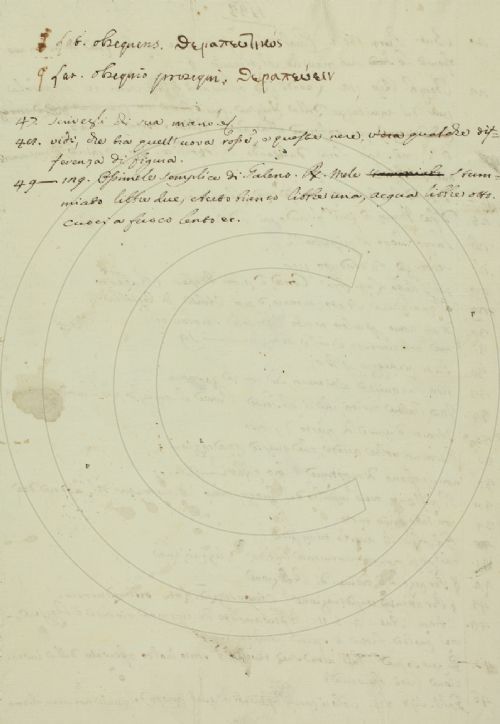 lat. obsequens. θεραπευτικὸς
lat. obsequio prosequi. θεραπεύειν
47. di sua mano ec.
48. vidi, che tra quell'uova rosse, e queste nere v'era qualche dif=
ferenza di figura.
49— Ossimele semplice di Galeno. Rx. Mele schium=
miato libbre due, Aceto bianco libbre una, acqua libbre otto
cuoci a fuoco lento ec.